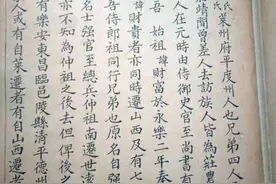 氏萊州府平度州人也兄弟四人
靖間曾差人去訪族人皆為莊農
人在元時由侍御史官至尚書有
始祖諱財富於永樂二年奉
諱財貴者亦同時遷山西及有七
吾侍郎祖同行兄弟也原名自強
名士強官至總兵仲祖南遷世遠
亦不知為仲祖之後去但俾後之
有樂安東昌臨邑陵縣清平德州
人或有自萊遷者有自山西遷者